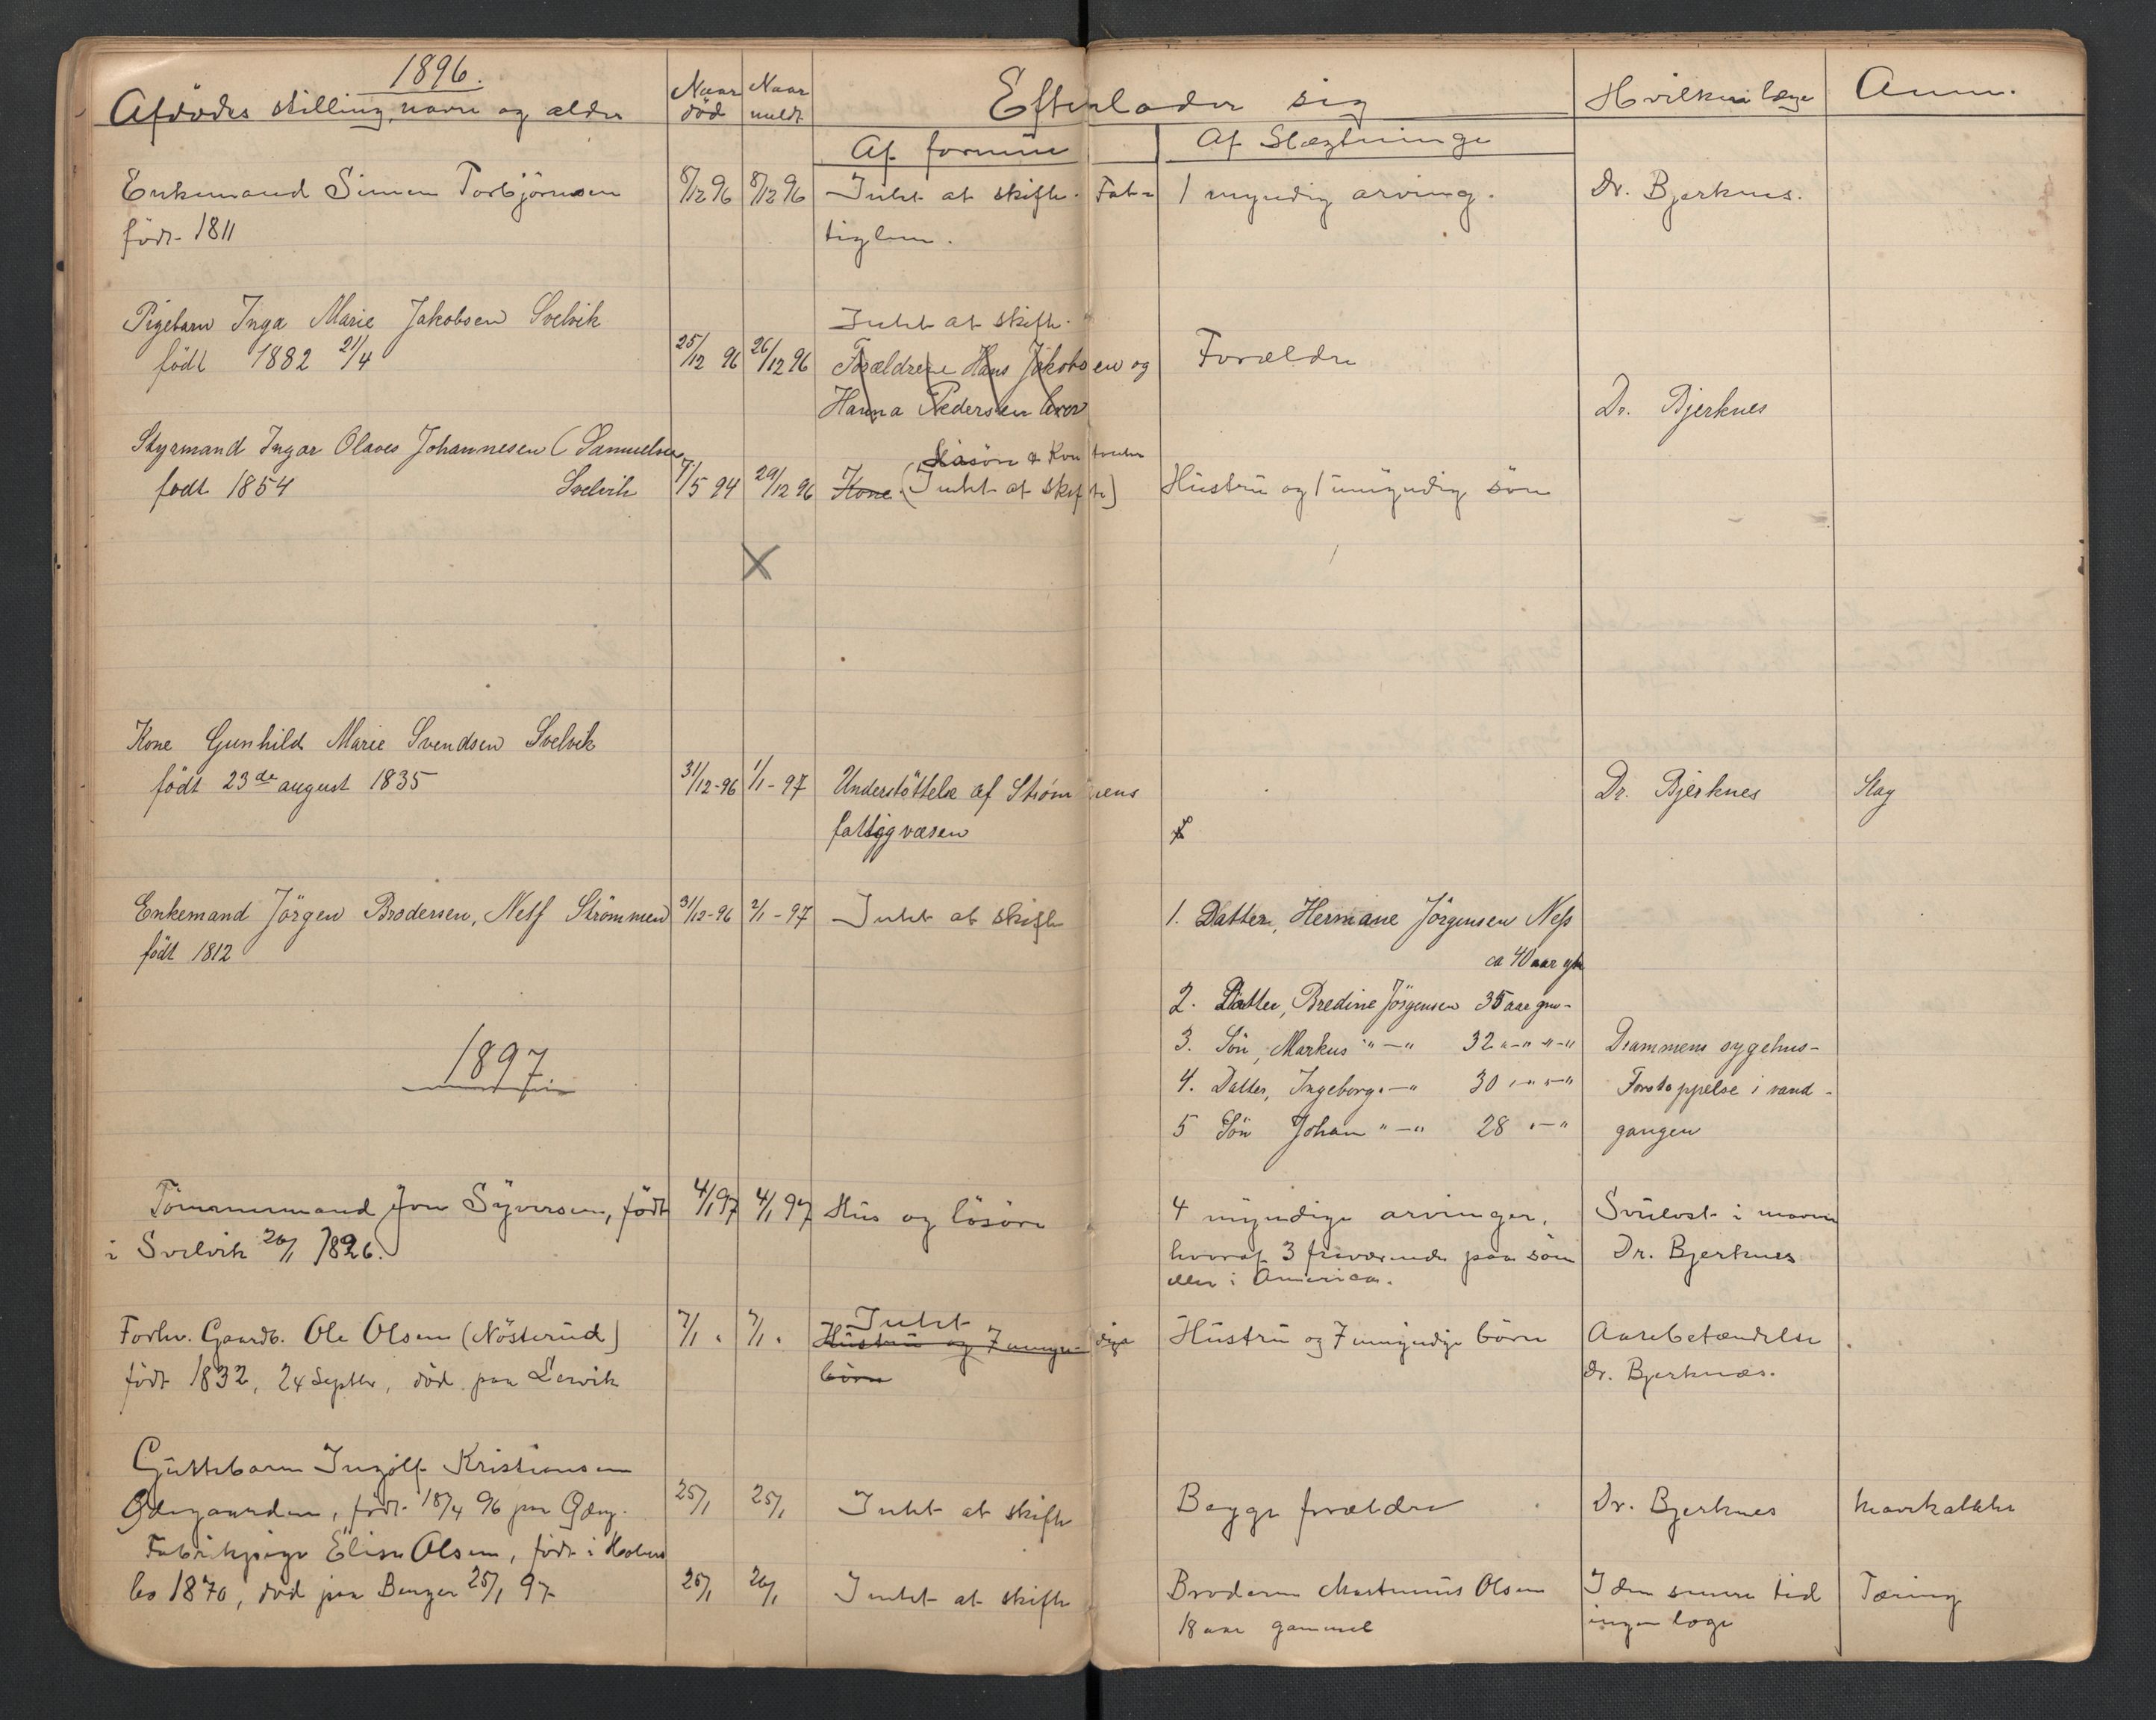 1896.
Afdödes stilling navn og alder
Naar död
Naar meldt
Efterlader sig
Hvilken læge
Anm.
Af formue
Af Slægtninge
Enkemand Simen Torbjörnsen
8/12 96 8/12 96 Intet at skifte. Fat-
1 myndig arving.
Dr. Bjerknes.
födt 1811
tiglem.
Pigebarn Inga Marie Jakobsen Svelvik
Intet at skifte.
födt 1882 21/4
25/12 96 26/12 96 Forældrene Hans Jakobsen og
Forældre
Hanna Pedersen lever
Dr. Bjerknes
Styrmand Ingar Olaves Johannesen (Samuelsen
Läsöre &
födt 1854 Svelvik
7/5 94 29/12 96 Kone (Intet at skifte)
Hustru og 1 umyndig sön
Kone Gunhild Marie Svendsen Svelvik
födt 23de august 1835
31/12-96 1/1-97 Understöttelse af Strømmens
Dr. Bjerknes
Slag
fattigvæsen
Enkemand Jörgen Brodersen, Ness Strömmen
31/12-96 2/1-97 Intet at skifte
1. Datter, Hermane Jörgensen Ness
födt 1812
ca 40 aar gl.
2. Datter, Bredine Jörgensen 35 aar gm-
1897.
3. Sön, Markus "—" 32 "-" "-"
Drammens sygehus-
4. Datter, Ingeborg "—" 30 "-" "-"
Forstoppelse i vand-
5 Sön Johan "—" 28 "-"
gangen
Tömmermand Jon Syversen, födt
4/1 97 4/1 97 Hus og lösöre
4 myndige arvinger,
Svulst i maven
i Svelvik 26/1 1826.
hvoraf 3 fraværende paa söen
Dr. Bjerknes
eller i America.
Forhv. Gaardb. Ole Olsen (Nösterud)
7/1 " 7/1 "
Intet
Hustru og 7 umyndige
börn
Hustru og 7 umyndige börn
Aarebetændelse
födt 1832, 24 Septbr, död paa Lervik
Dr. Bjerknæs.
Guttebarn Ingolf Kristiansen
Ödegaarden, födt 18/4 96 paa Ödeg.
25/1 25/1 Intet at skifte
Begge forældre
Dr. Bjerknes
Mavekatahr
Fabrikpige Elise Olsen, födt i Hobøl
1870, död paa Berger 25/1 97
25/1 26/1 Intet at skifte
Broderen Martinius Olsen
I den senere tid
Tæring
18 aar gammel
ingen læge